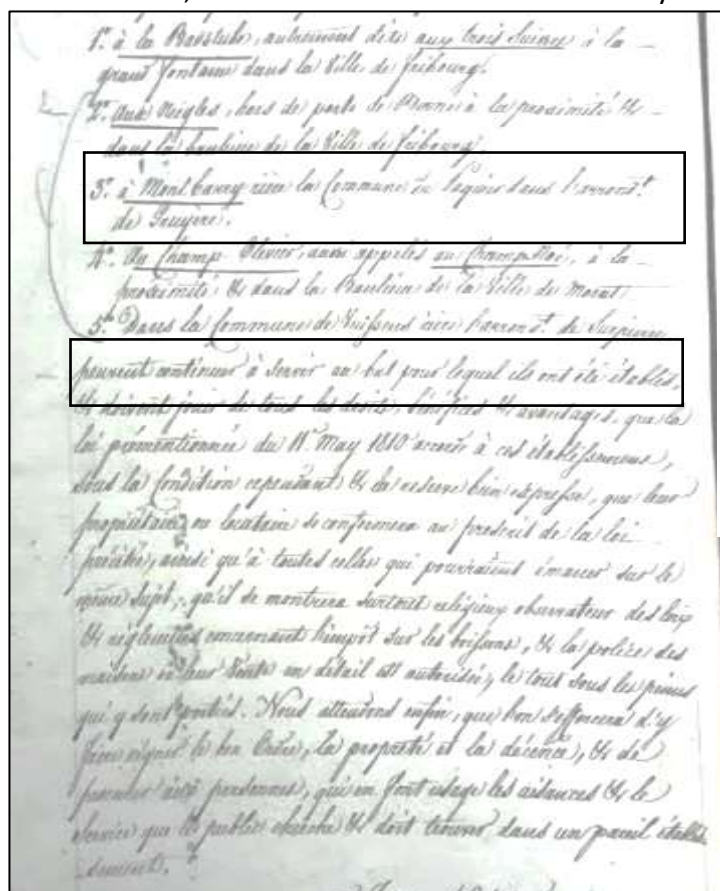 1º. à la Badstube, autrement dite aux trois Suisses à la
grand fontaine dans la Ville de fribourg.
2º. Aux Neigles, hors de porte de Berne à la proximité &
dans la banlieue de la Ville de fribourg.
3º. à Montbarry rière la Commune du Paquier dans l'arrondt.
de Gruyère.
4º. Au Champ Olivier, aussi appelés au Champ Raé, à la
proximité & dans la Banlieue de la Ville de Morat
5º. Dans la Commune de rière l'arrondt. de Surpierre
peuvent continuer à servir au but pour lequel ils ont été établis,
& doivent jouir de tous les droits, bénéfices & avantages, que la
loi prémentionnée du 11. May 1810 accorde à ces établissemens,
sous la Condition cependant & la réserve bien expresse, que leur
propriétaire ou locataire se conformera au prescrit de la loi
précitée, ainsi qu'à toutes celles qui pourraient émaner sur le
même sujet, qu'il se montrera surtout religieux observateur des loix
& réglemens concernant l'impôt sur les boissons, & la police des
maisons où leur Vente en détail est autorisée, le tout sous les peines
qui y sont portées. Nous attendons enfin, que l'on s'efforcera d'y
faire régner le bon Ordre, la propreté et la décence, & de
procurer aux personnes, qui en font usage les aisances & le
Service que le public cherche & doit trouver dans un pareil établis-
sement.